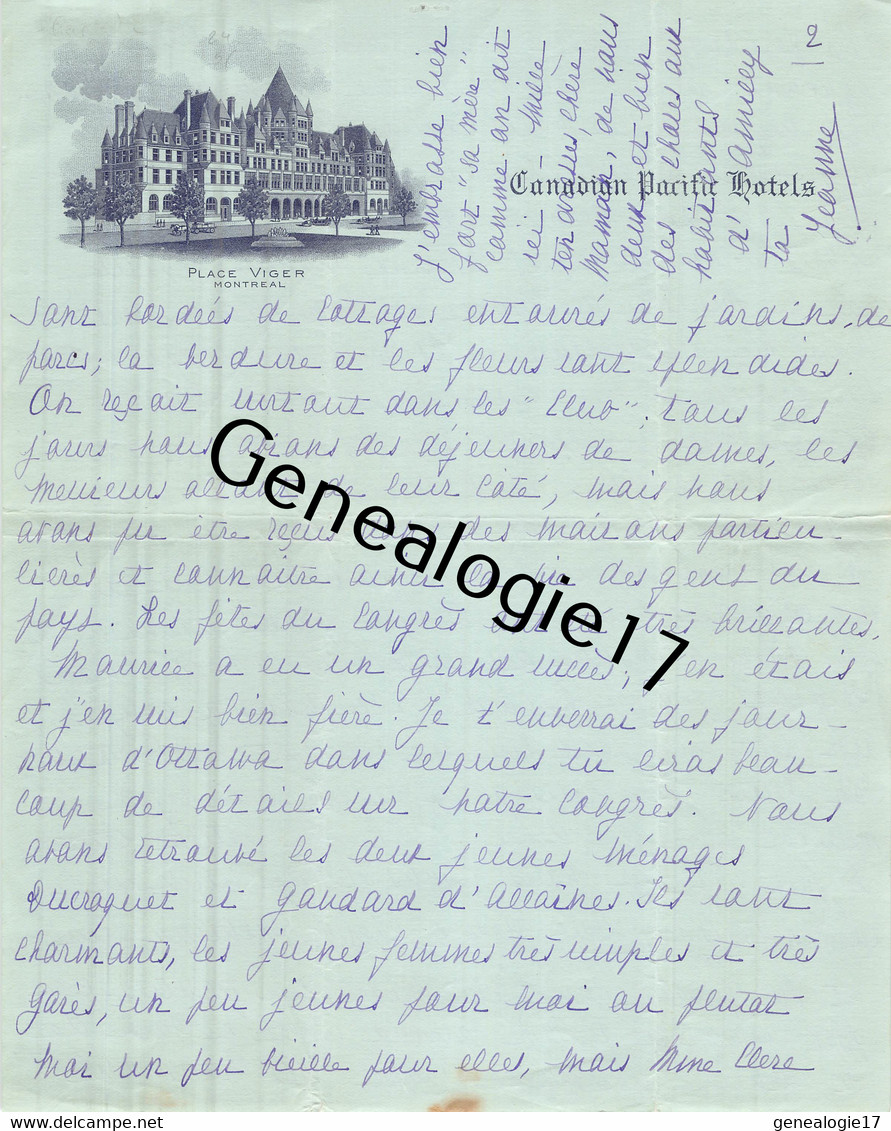 2
Canadian Pacific Hotels
PLACE VIGER
MONTREAL
J'embrasse bien
fort "sa mère"
comme on dit
ici - mille
tendresses, chère
Maman, de nous
deux et bien
des choses aux
habitants
d'Amilly
ta
Jeanne
sont bordées de cottages entourés de jardins, de
parcs; la verdure et les fleurs sont splendides.
On reçoit surtout dans les "Club"; tous les
jours nous avons des déjeuners de dames, les
messieurs allant de leur côté, mais nous
avons pu être reçus dans des maisons particu-
lières et connaître ainsi la vie des gens du
pays. Les fêtes du Congrès ont été très brillantes,
Maurice a eu un grand succès, j'en étais
et j'en suis bien fière. Je t'enverrai des jour-
naux d'Ottawa dans lesquels tu liras beau-
coup de détails sur notre Congrès. Nous
avons retrouvé les deux jeunes ménages
Ducroquet et Gaudard d'Allaines. Ils sont
charmants, les jeunes femmes très simples et très
gaies, un peu jeunes pour moi ou plutot
moi un peu vieille pour elles, mais Mme Clerc
Genealogie17
genealogie17